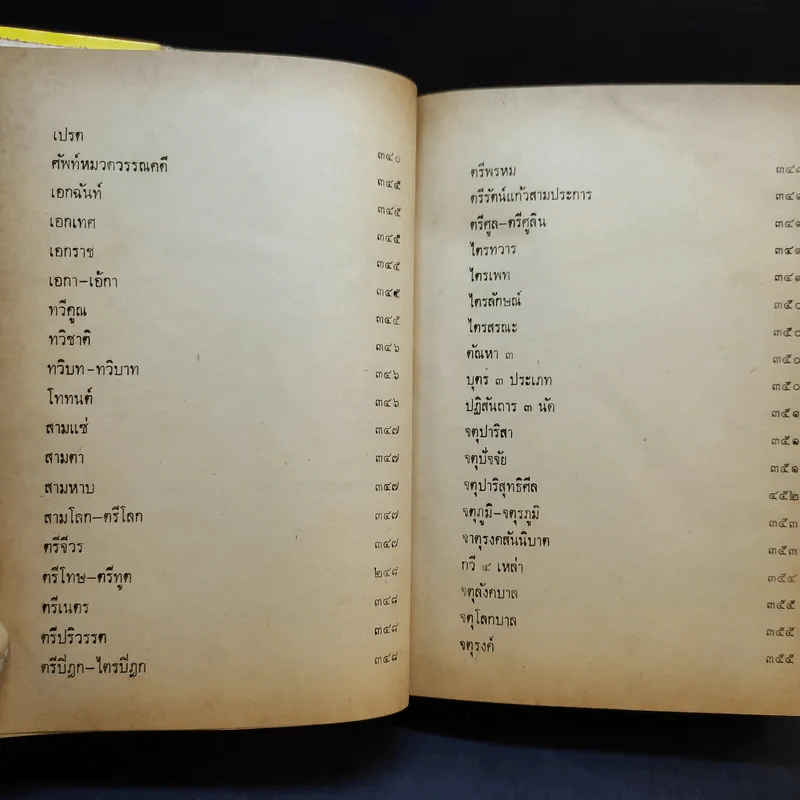 เปรต ๓๔๐
ศัพท์หมวดวรรณคดี ๓๔๕
เอกฉันท์ ๓๔๕
เอกเทศ ๓๔๕
เอกราช ๓๔๕
เอกา-เอ้กา ๓๔๕
ทวีคูณ ๓๔๕
ทวิชาติ ๓๔๖
ทวิบท-ทวิบาท ๓๔๖
โททนต์ ๓๔๖
สามแซ่ ๓๔๗
สามตา ๓๔๗
สามหาบ ๓๔๗
สามโลก-ตรีโลก ๓๔๗
ตรีจีวร ๓๔๗
ตรีโทษ-ตรีทูต ๒๔๘
ตรีเนตร ๓๔๘
ตรีปริวรรต ๓๔๘
ตรีปิฎก-ไตรปิฎก ๓๔๘
ตรีพรหม
ตรีรัตน์แก้วสามประการ
ตรีศูล-ตรีศูลิน
ไตรทวาร
ไตรเพท
ไตรลักษณ์ ๓๕๐
ไตรสรณะ ๓๕๐
ตัณหา ๓ ๓๕๐
บุตร ๓ ประเภท ๓๕๐
ปฏิสันถาร ๓ นัด ๓๕๑
จตุปาริสา ๓๕๑
จตุปัจจัย ๓๕๑
จตุปาริสุทธิศีล ๔๕๒
จตุภูมิ-จตุรภูมิ ๓๕๓
จาตุรงคสันนิบาต ๓๕๓
กวี ๔ เหล่า ๓๕๔
จตุลังคบาล ๓๕๕
จตุโลกบาล ๓๕๕
จตุรงค์ ๓๕๕